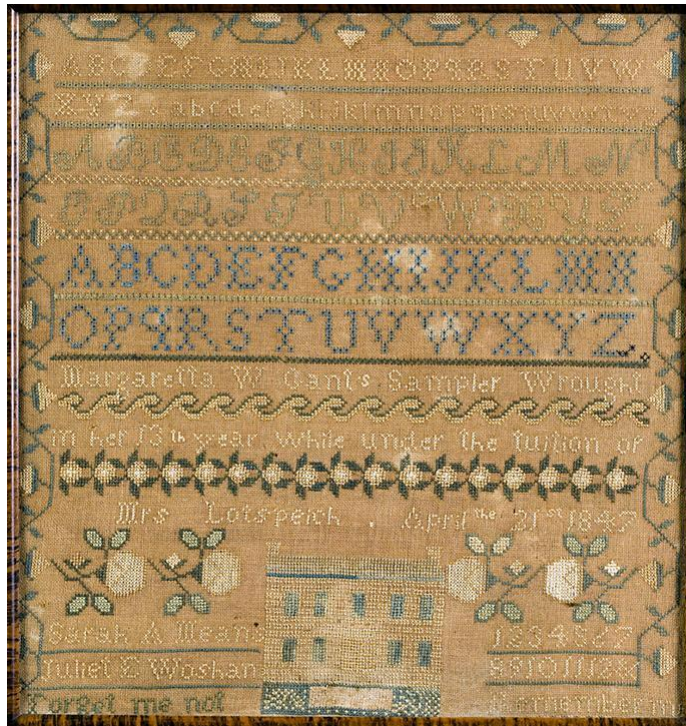 ABCDEFGHIJKLMNOPQRSTUVW
XYZ abcdefghijklmnopqrstuvwxyz
ABCDEFGHIJKLMN
OPQRSTUVWXYZ
ABCDEFGHIJKLMN
OPqRSTUVWXYZ
Margaretta W Gants Sampler Wrought
in her 13th year While under the tuition of
Mrs Lotspeich April the 21st 1847
Sarah A Means 1234567
Juliet E
Forget me not Remember me